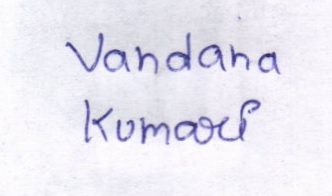 Vandana
Kumari